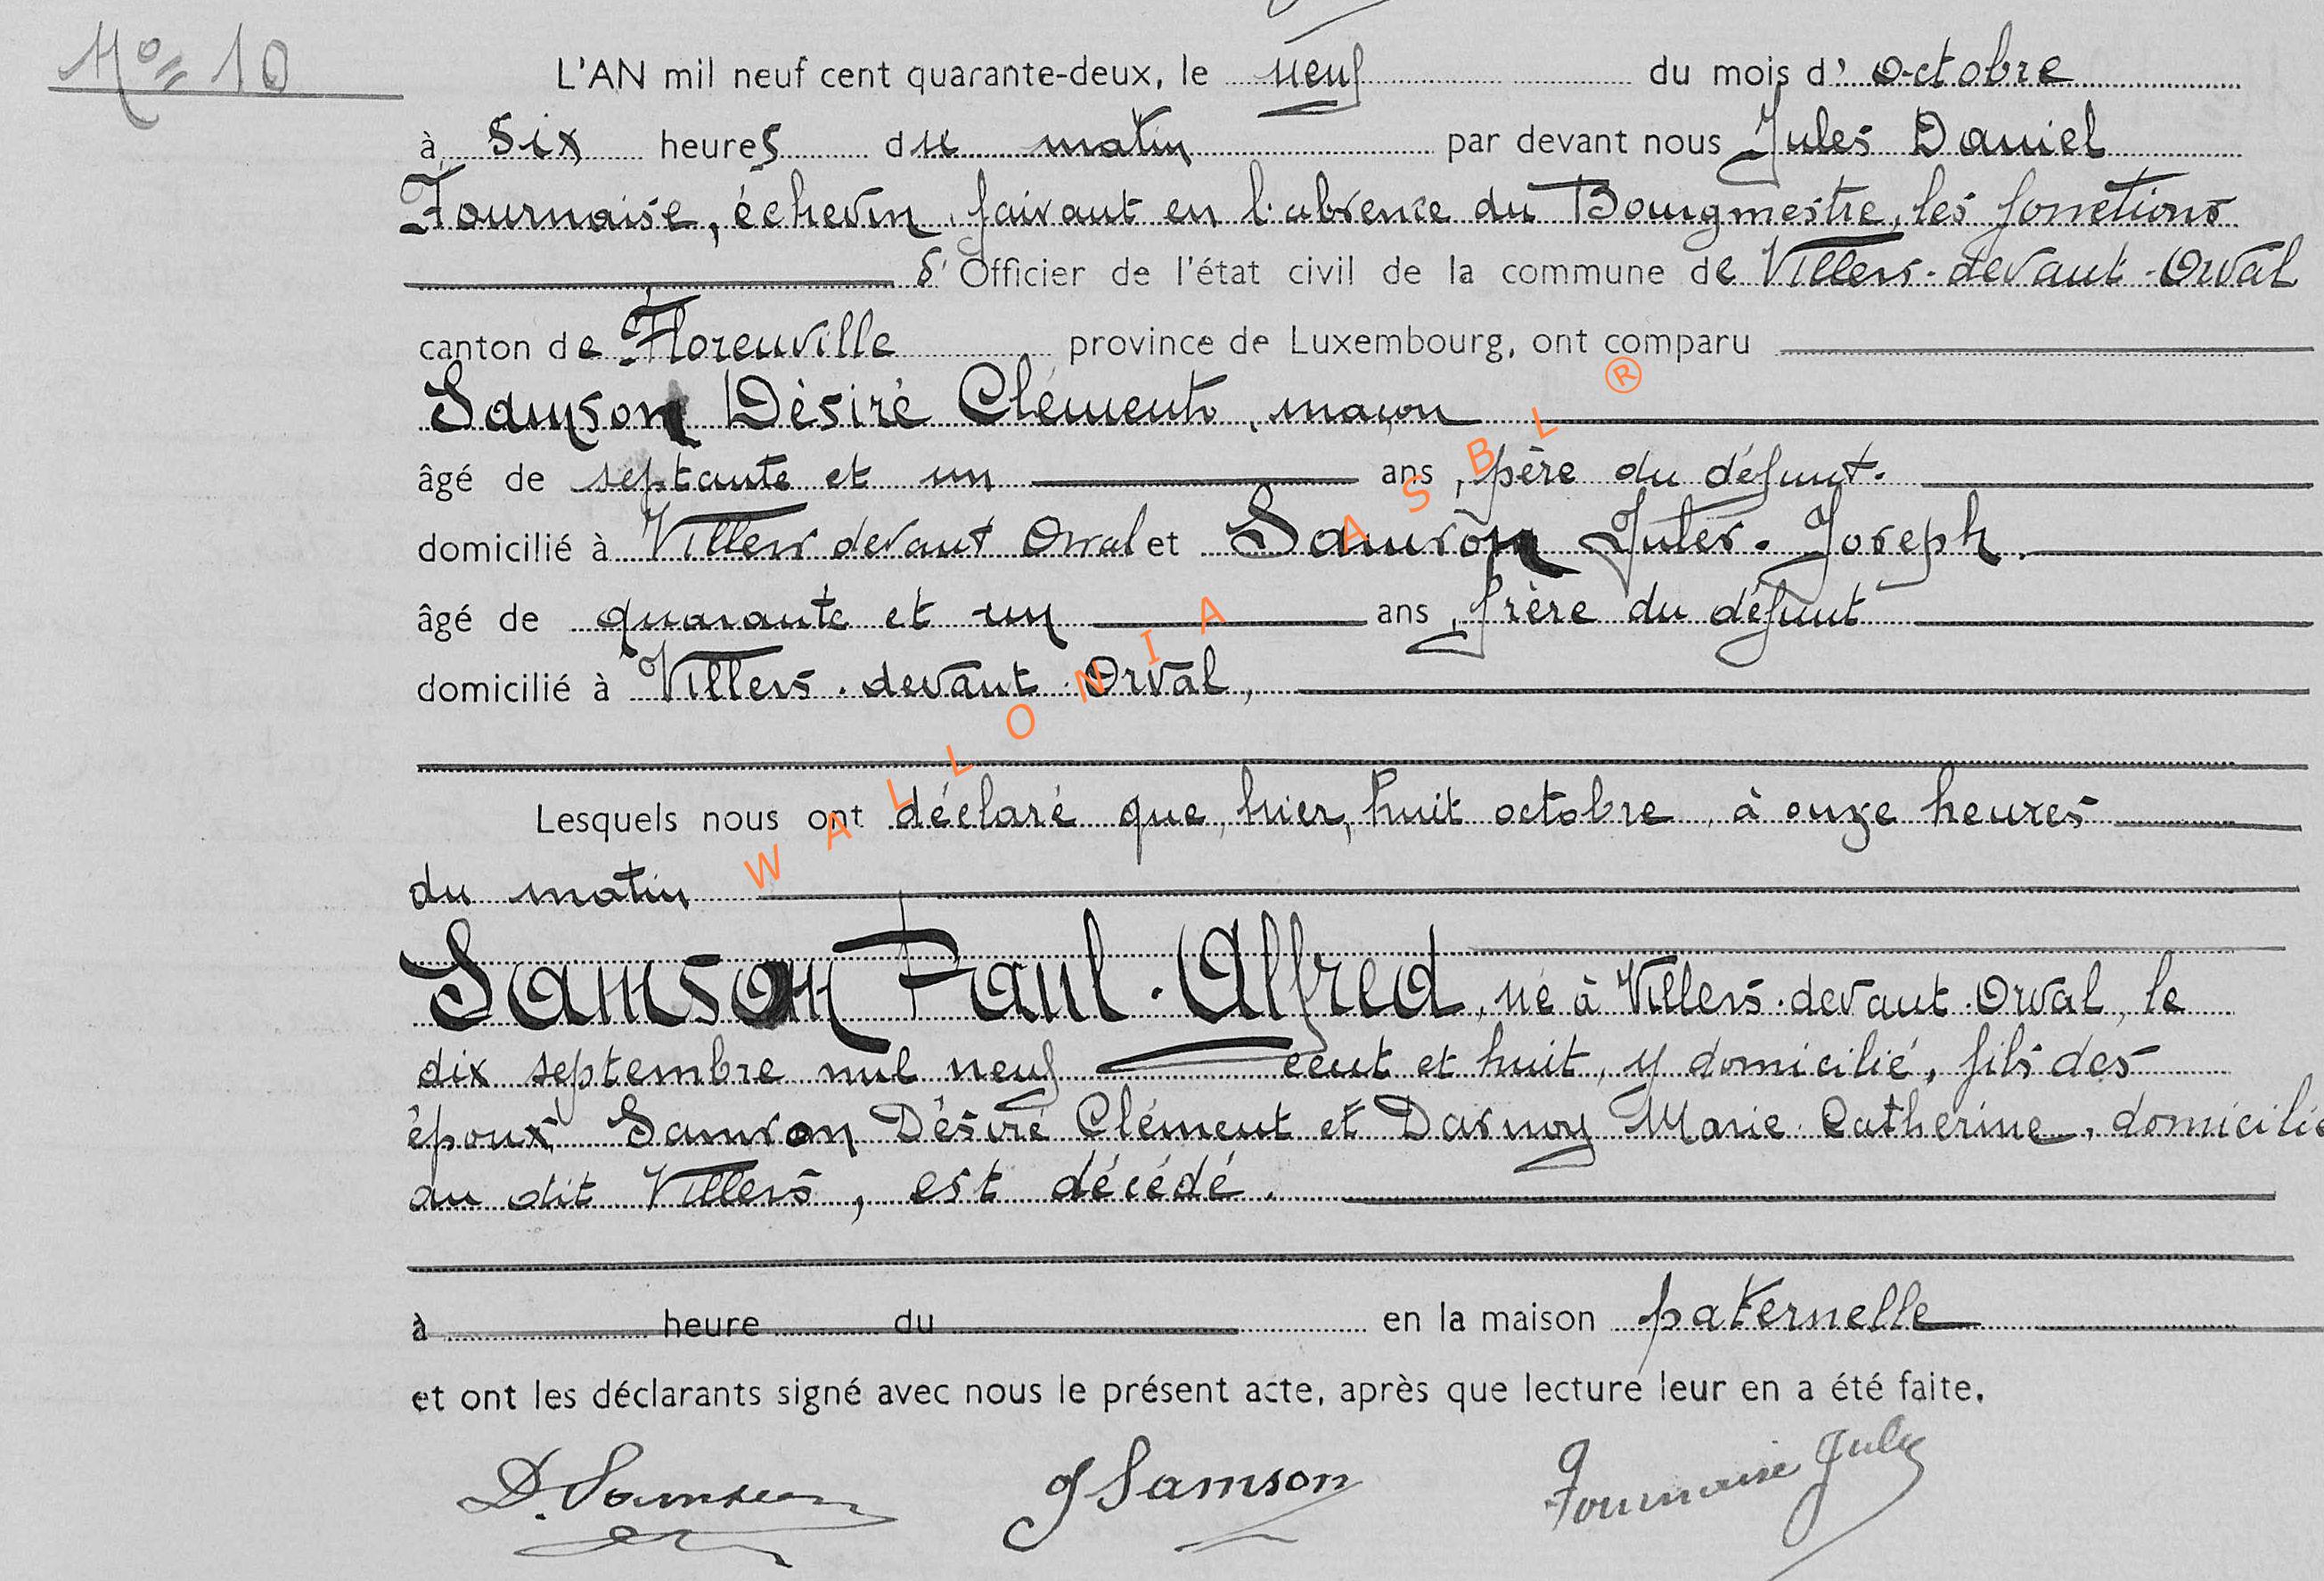 No 10
L'AN mil neuf cent quarante-deux, le neuf du mois d' Octobre
à six heures du matin par devant nous Jules Daniel
Fournaise, échevin, faisant en l'absence du Bourgmestre, les fonctions
d'Officier de l'état civil de la commune de Villers-devant-Orval
canton de Florenville province de Luxembourg, ont comparu
Samson Désiré Clément, maçon
âgé de septante et un ans, père du défunt.
domicilié à Villers devant Orval et Samson Jules-Joseph.
âgé de quarante et un ans, frère du défunt
domicilié à Villers-devant-Orval,
Lesquels nous ont déclaré que, hier, huit octobre, à onze heures
du matin
Samson Paul-Alfred, né à Villers-devant-Orval, le
dix septembre mil neuf cent et huit, y domicilié, fils des
époux Samson Désiré Clément et Darnoy Marie-Catherine, domiciliés
au dit Villers, est décédé.
à heure du en la maison paternelle
et ont les déclarants signé avec nous le présent acte, après que lecture leur en a été faite.
D. Samson J Samson Fournaise Jules
WALLONIA ASBL ®